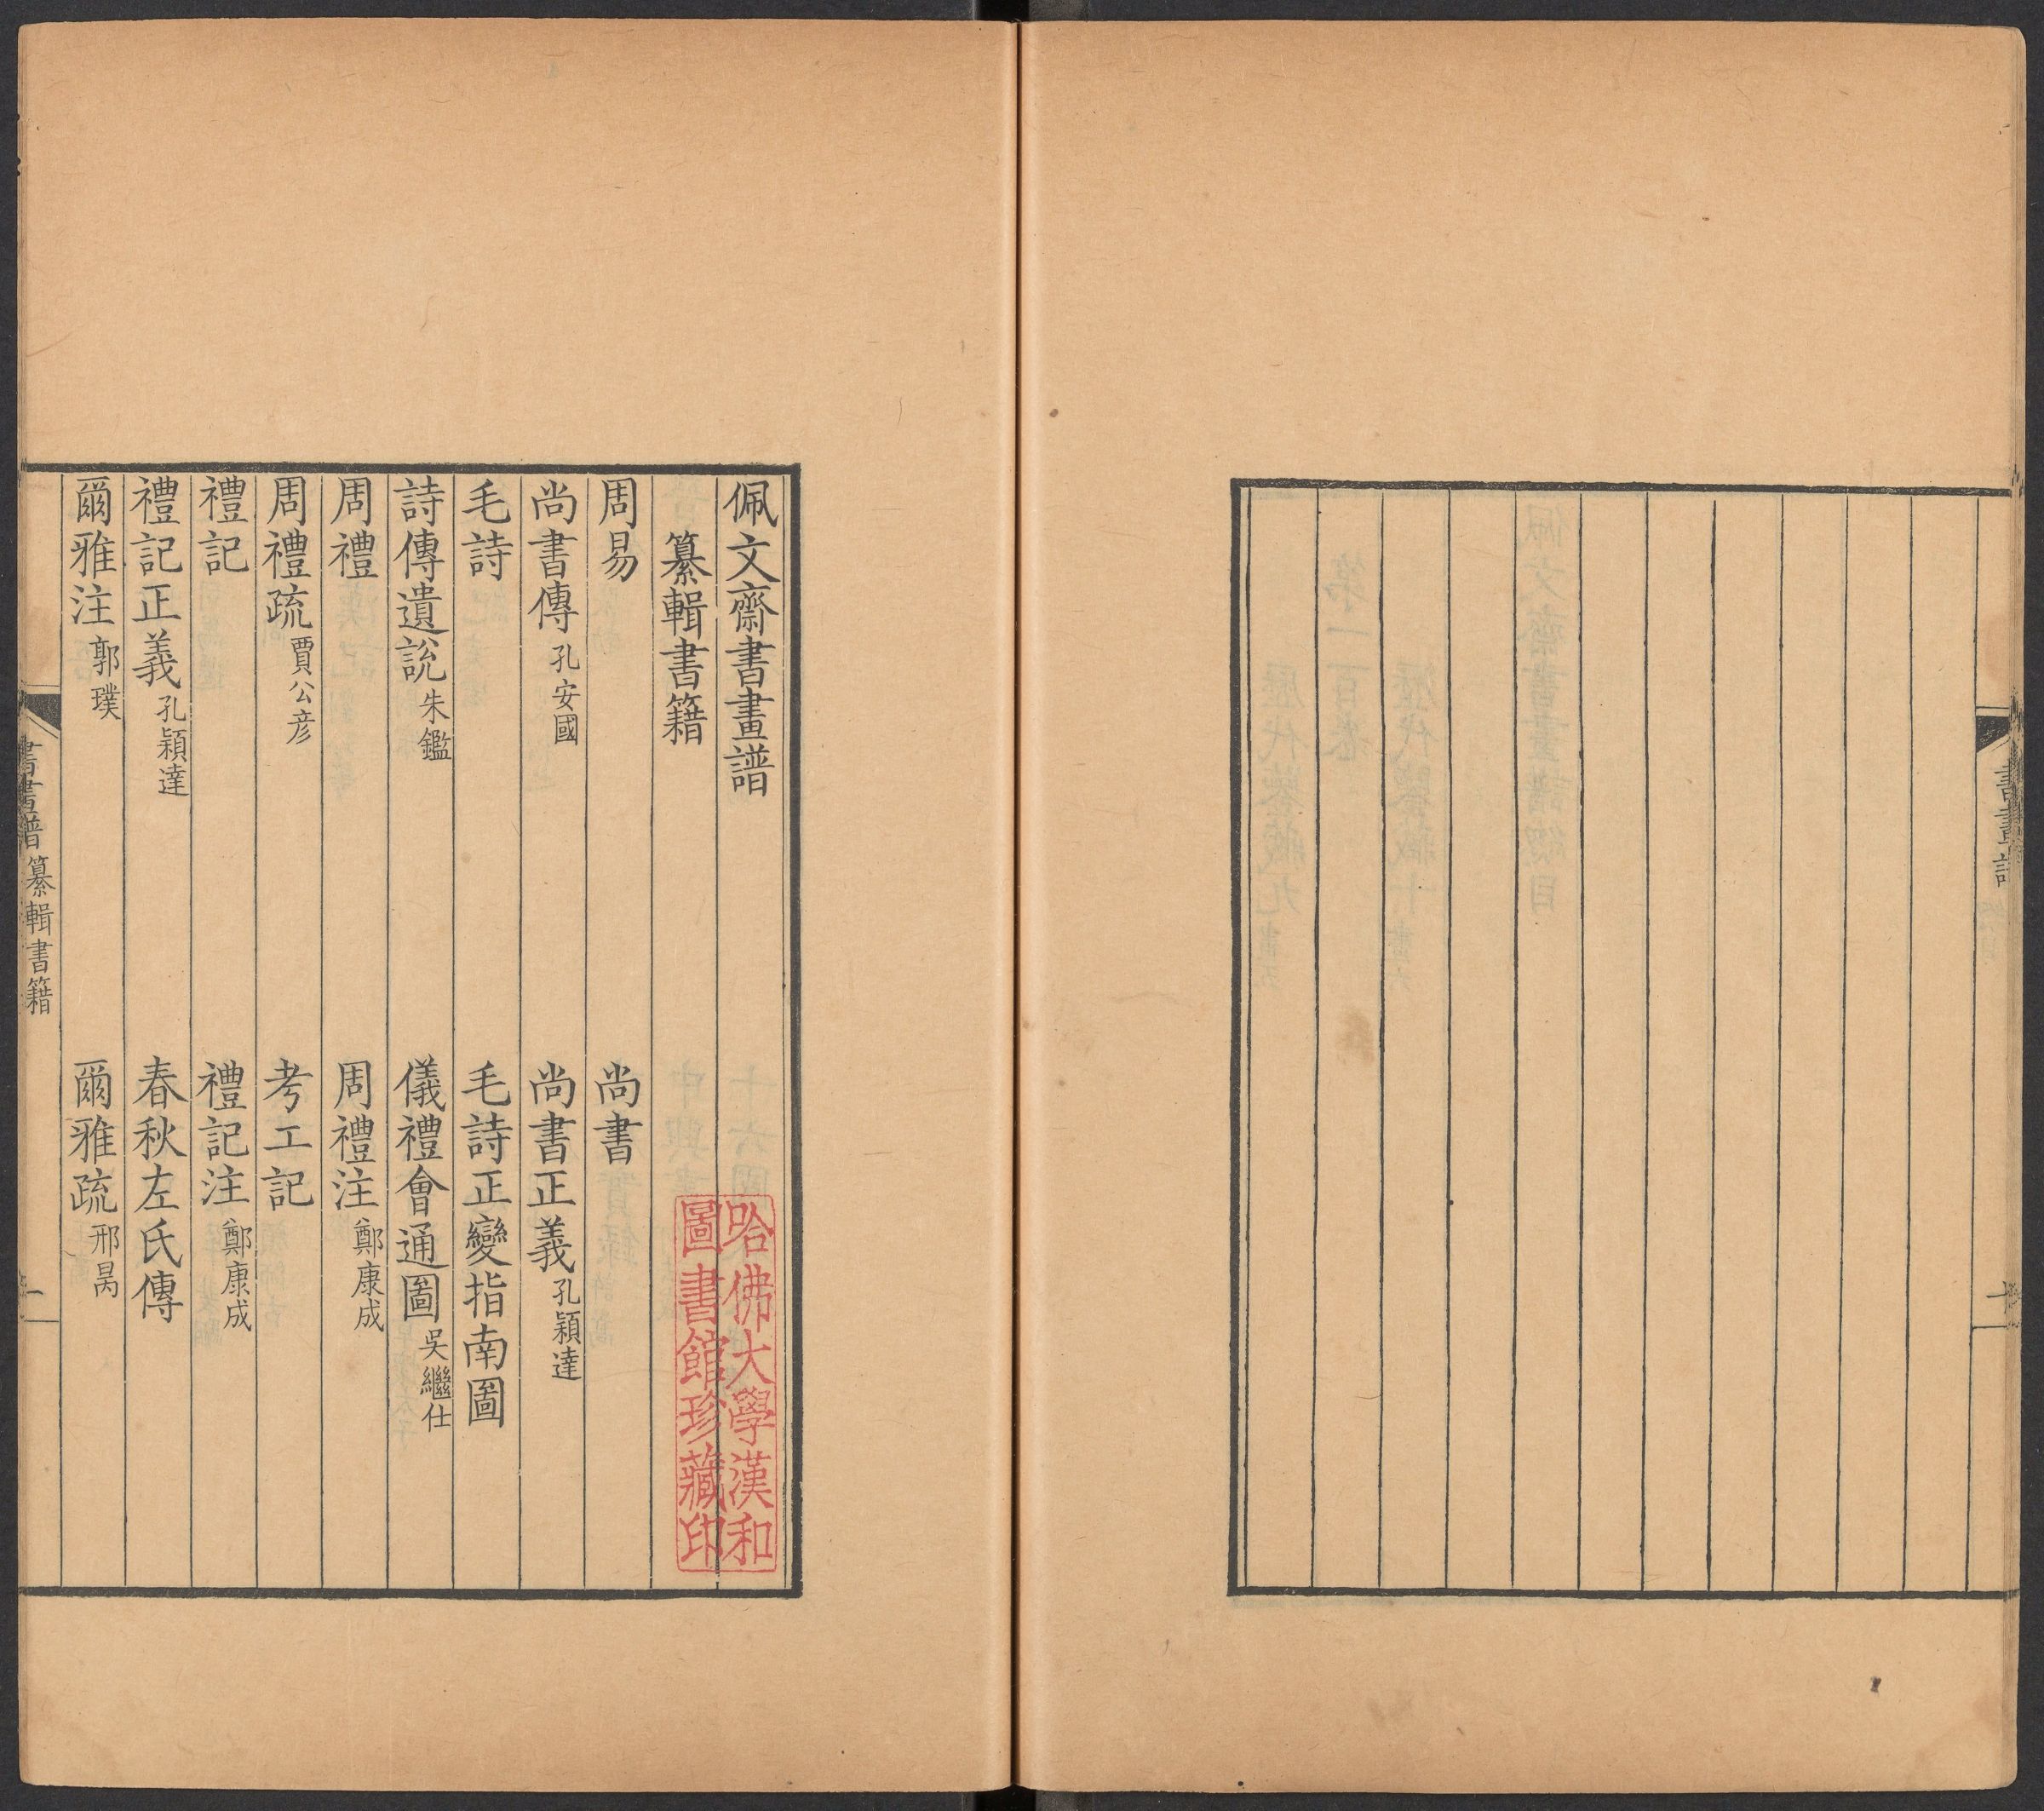 書畫譜
一
佩文齋書畫譜
纂輯書籍
周易 尚書
尚書傳 孔安國 尚書正義 孔穎達
毛詩 毛詩正變指南圖
詩傳遺說 朱鑑 儀禮會通圖 吳繼仕
周禮 周禮注 鄭康成
周禮疏 賈公彥 考工記
禮記 禮記注 鄭康成
禮記正義 孔穎達 春秋左氏傳
爾雅注 郭璞 爾雅疏 邢昺
書畫譜 纂輯書籍 一
哈佛大學漢和
圖書館珍藏印